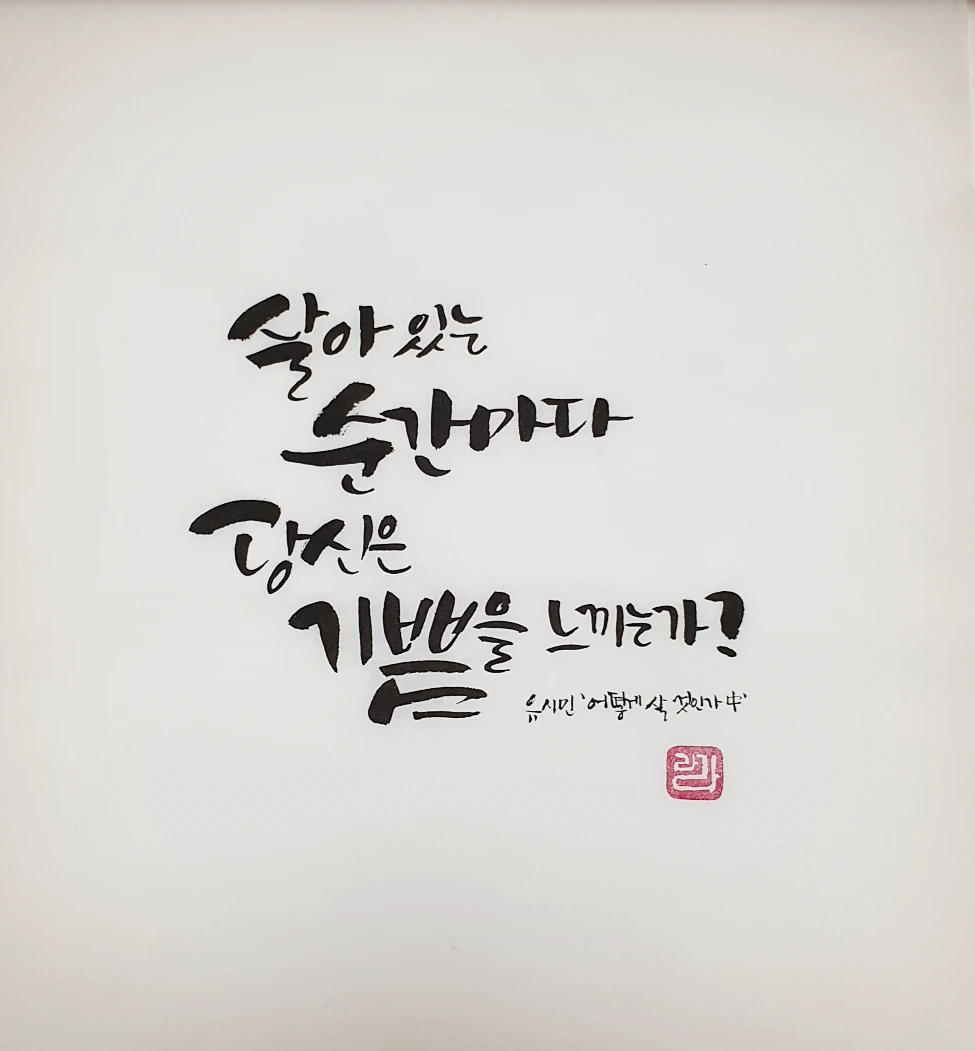 살아 있는
순간마다
당신은
기쁨을 느끼는가?
유시민 '어떻게 살 것인가 中'